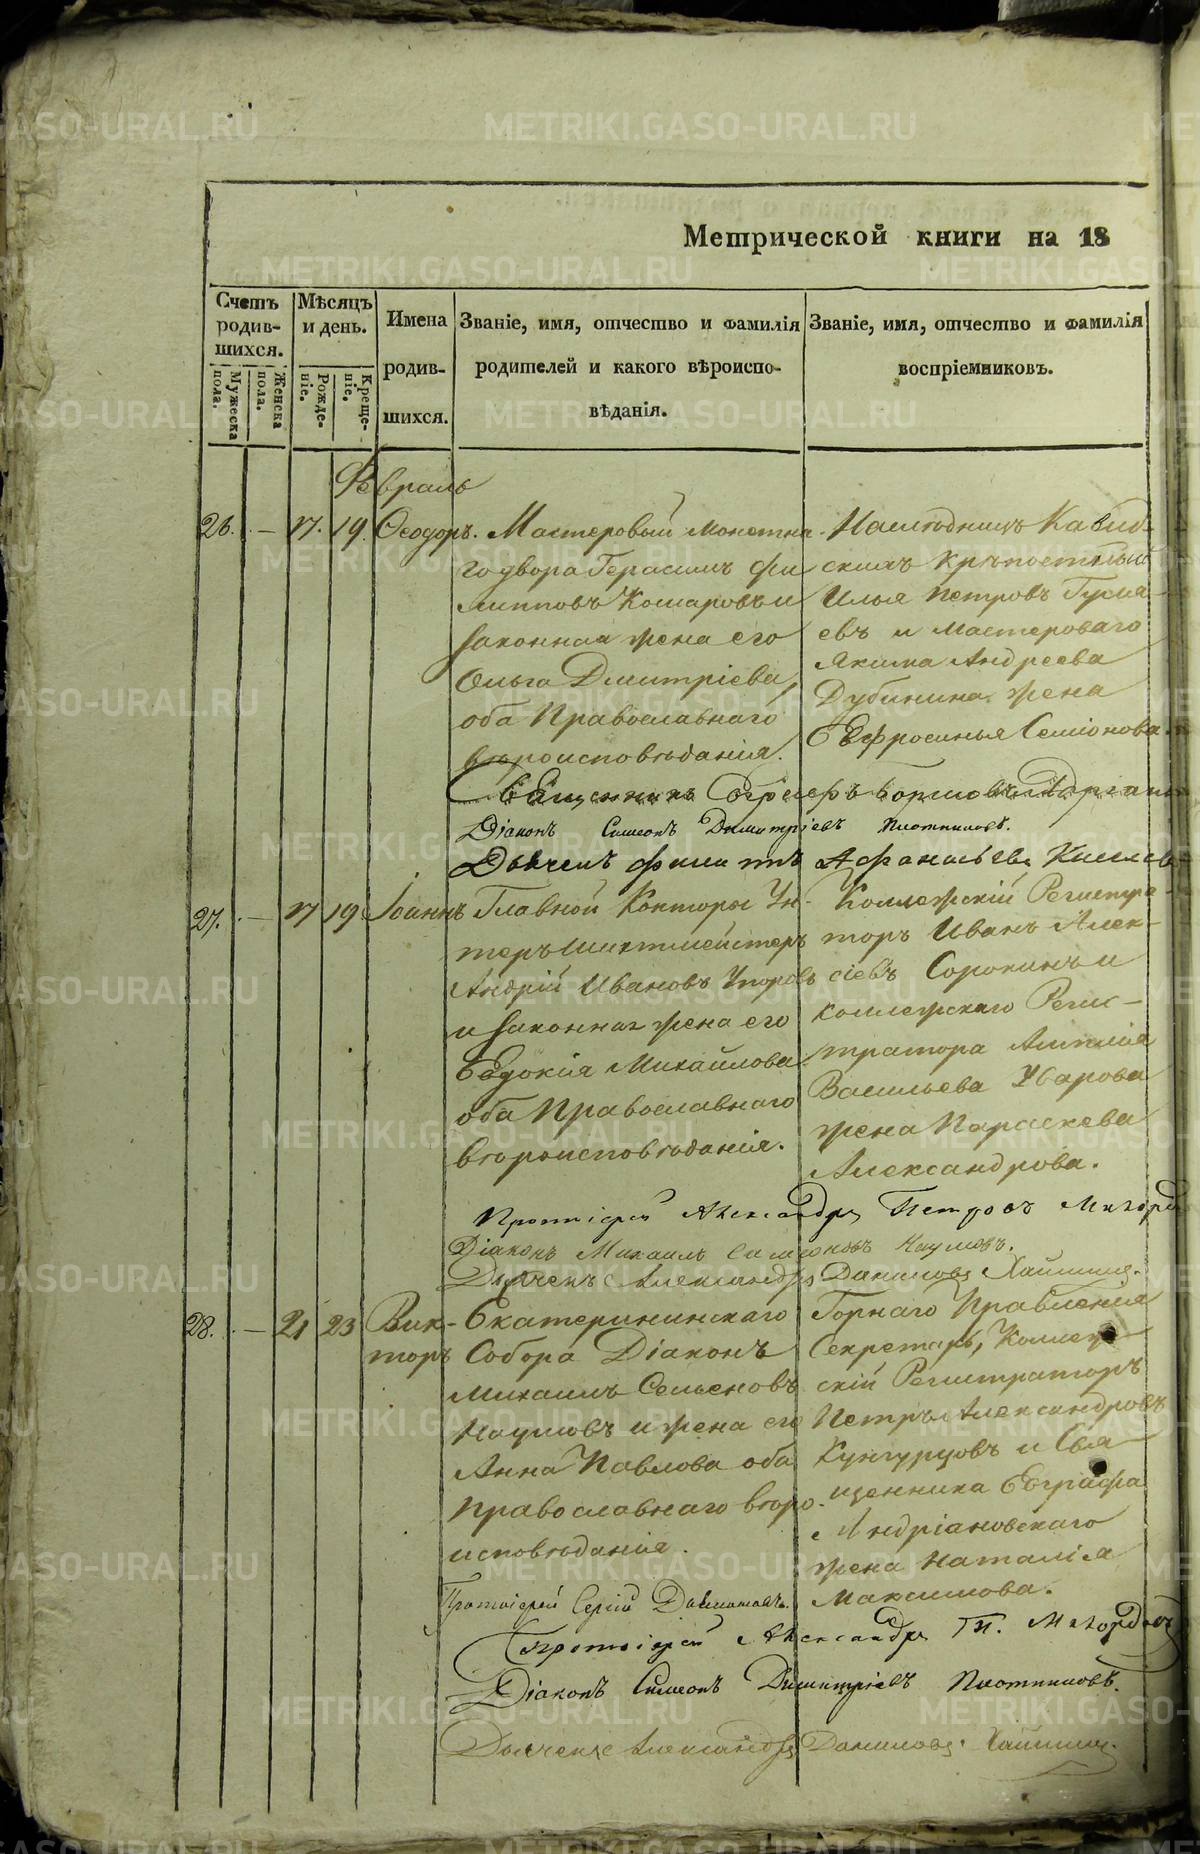 Метрической книги на 18
Счетъ родившихся.
Мужеска пола.
Женска пола.
Мѣсяцъ и день.
Рожденіе.
Крещеніе.
Имена родившихся.
Званіе, имя, отчество и фамилія родителей и какого вѣроисповѣданія.
Званіе, имя, отчество и фамилія воспріемниковъ.
Февраль
26. – 17. 19. Ѳеодоръ.
Мастеровый монетна
го двора Герасимъ Фи
липповъ Комаровъ и
законная жена его
Ольга Дмитріева,
оба Православнаго
вѣроисповѣданія.
Наслѣдницъ
скихъ крѣпостный
Илья Петровъ
евъ и мастероваго
Якима Андреева
Дубинина жена
Евфросинья Семіонова.
Священникъ
Діаконъ Симеонъ Димитріевъ Плотниковъ.
Дьячекъ Филиппъ Афанасьевъ
27. – 17 19 Іоаннъ
Главной Конторы Ун-
теръшихтмейстеръ
Андрій Ивановъ
и законная жена его
Евдокія Михайлова
оба Православнаго
вѣроисповѣданія.
Коллежскій Регистра-
торъ Иванъ Алек-
сіевъ Сорокинъ и
коллежскаго Реги-
стратора
Васильева Уварова
жена Параскева
Александрова.
Протоіерей Александръ Петровъ
Діаконъ Михаилъ Симеоновъ Наумовъ.
Дьячекъ Александръ Даниловъ
28. – 21 23 Вик-
торъ
Екатерининскаго
Собора Діаконъ
Михаилъ Семеновъ
Наумовъ и жена его
Анна Павлова оба
Православнаго вѣро-
исповѣданія.
Горнаго Правленія
Секретарь, Коллеж-
скій Регистраторъ
Петръ Александровъ
Кунгурцовъ и Свя-
щенника Евграфа
Андріановскаго
жена Наталія
Максимова.
Протоіерей Сергій
Протоіерей Александръ П.
Діаконъ Симеонъ Димитріевъ Плотниковъ.
Дьячекъ Александръ Даниловъ
METRIKI.GASO-URAL.RU